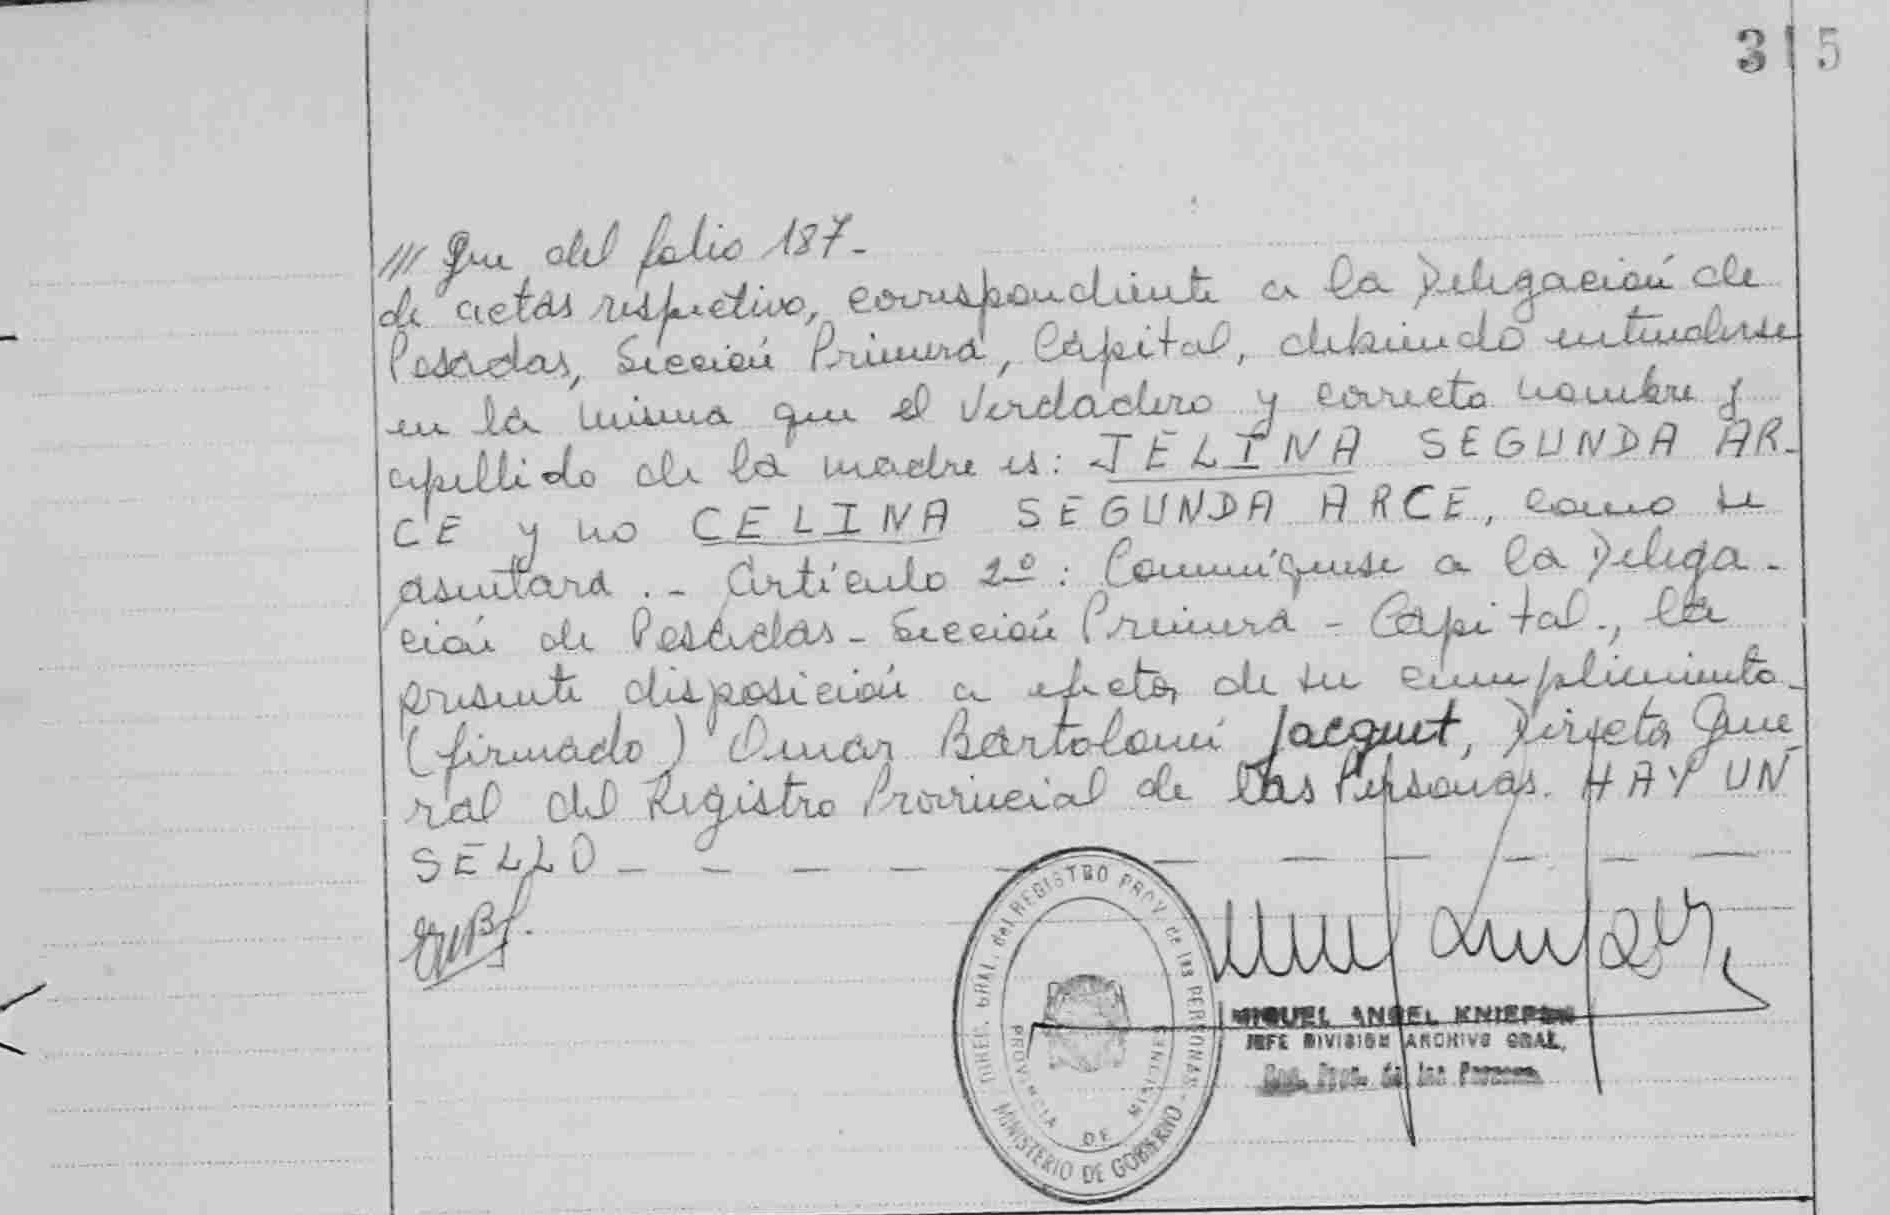 315
/// Que del folio 187.-
de actas respectivo, correspondiente a la Delegación de
Posadas, Sección Primera, Capital, debiendo entenderse
en la misma que el verdadero y correcto nombre y
apellido de la madre es: JELINA SEGUNDA AR-
CE y no CELINA SEGUNDA ARCE, como se
asentara.- Artículo 2º: Comuníquese a la Delega-
ción de Posadas - Sección Primera - Capital., la
presente disposición a efectos de su cumplimiento.-
(firmado) Omar Bartolomé Jacquet, Director Gene
ral del Registro Provincial de las Personas. HAY UN
SELLO - - - - - - - - - -
DIREC. GRAL. del REGISTRO PROV. de las PERSONAS -
MINISTERIO DE GOBIERNO
PROVINCIA DE MISIONES
MIGUEL ANGEL
JEFE DIVISION ARCHIVO GRAL.
Reg. Prov. de las Personas